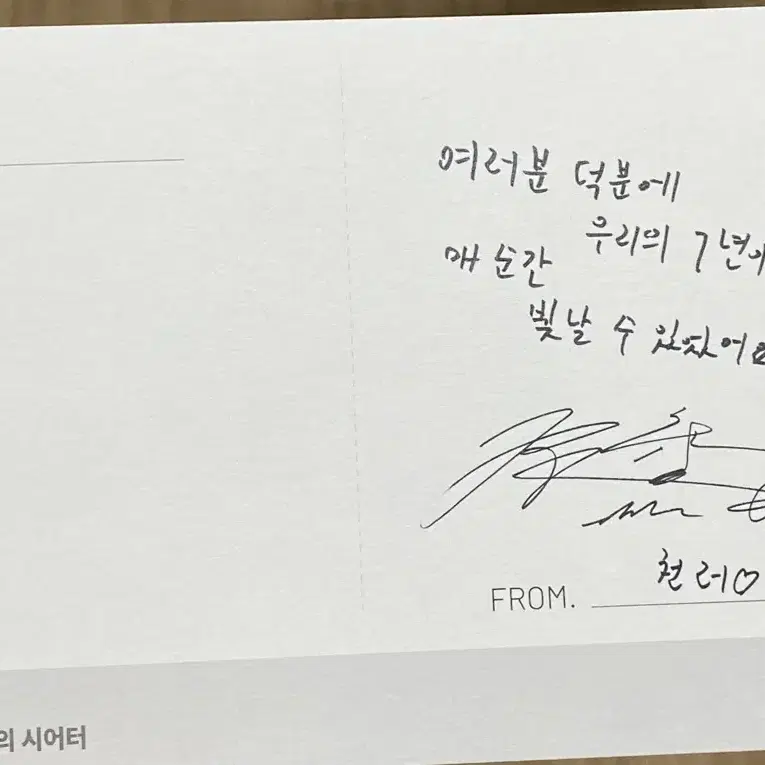 여러분 덕분에
우리의 7년이
매 순간
빛날 수 있었어요
FROM. 천러♡
의 시어터